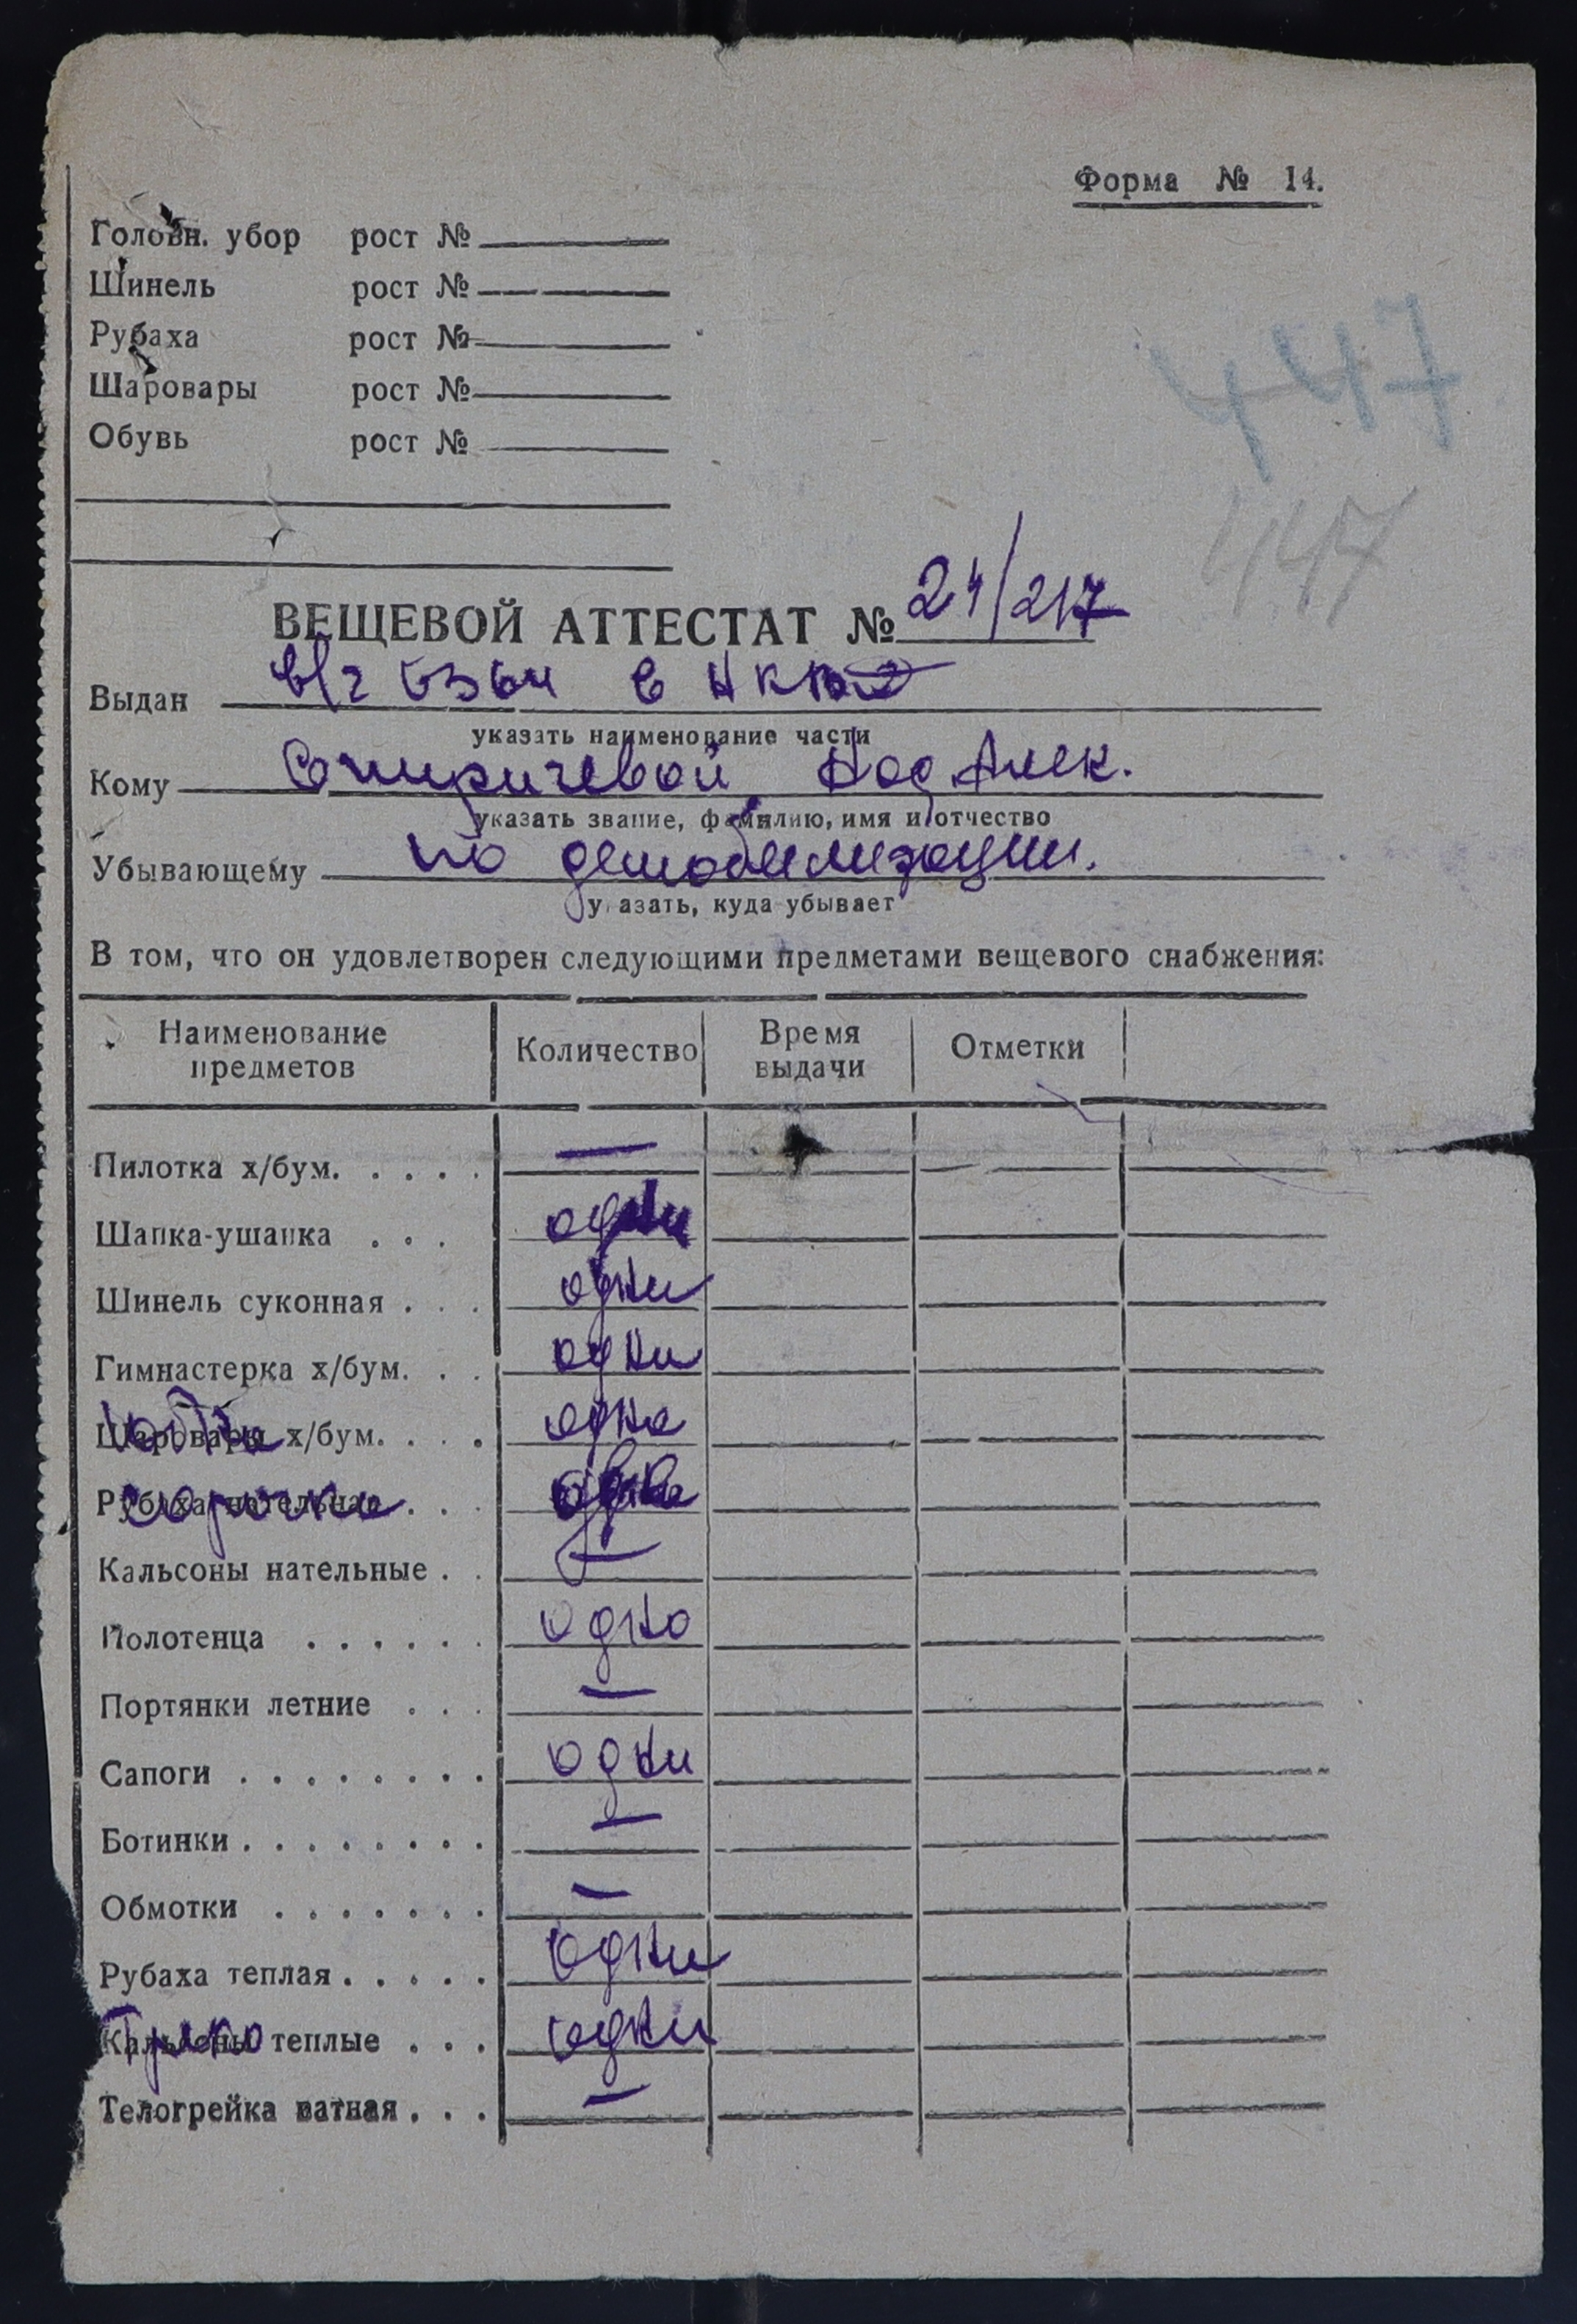 Форма № 14.
Головн. убор рост №
Шинель рост №
Рубаха рост №
Шаровары рост №
Обувь рост №
447
447
ВЕЩЕВОЙ АТТЕСТАТ № 24/217
Выдан в/ч
указать наименование части
Кому Спиричевой Над. Алек.
указать звание, фамилию, имя и отчество
Убывающему по демобилизации.
у азать, куда убывает
В том, что он удовлетворен следующими предметами вещевого снабжения:
Наименование предметов Количество Время выдачи Отметки
Пилотка х/бум. . . . . —
Шапка-ушанка . . . одни
Шинель суконная . . . одни
Гимнастерка х/бум. . . одни
Шаровары х/бум. . . . юбка одна
Рубаха нательная . . . сорочка
Кальсоны нательные . . —
Полотенца . . . . . . одно
Портянки летние . . . —
Сапоги . . . . . . . . одни
Ботинки . . . . . . . . —
Обмотки . . . . . . . —
Рубаха теплая . . . . . одни
Кальсоны теплые . . . трико одни
Телогрейка ватная . . . —